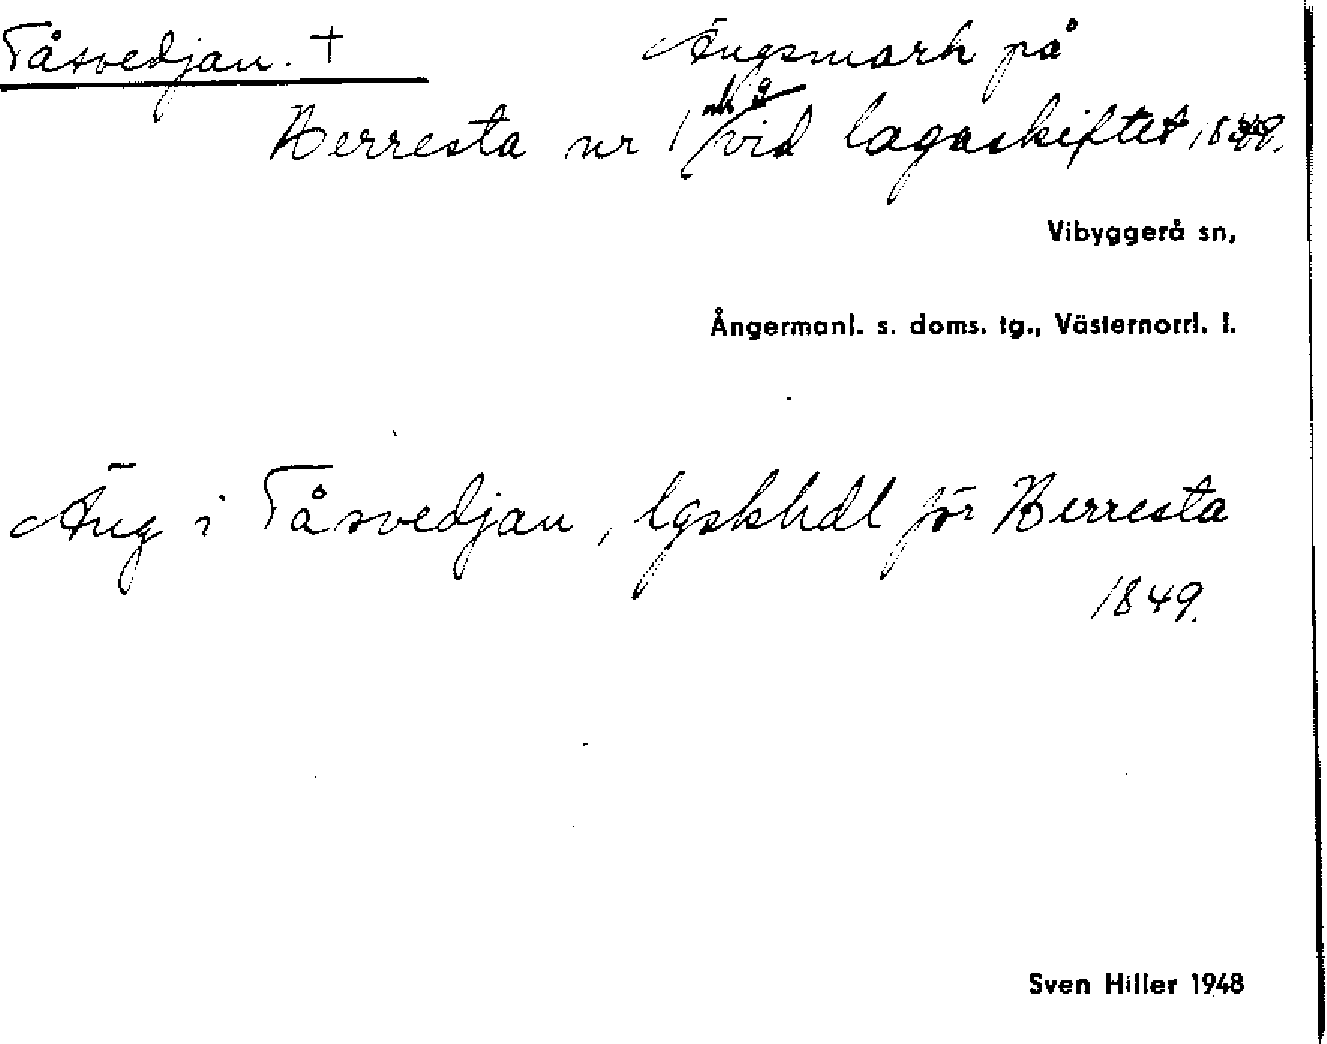 Tåsvedjan. † Ängsmark på
Berresta nr 1 och 9 vid lagaskiftet 1849.
Vibyggerå sn,
Ångermanl. s. doms. tg., Västernorrl. l.
Äng i Tåsvedjan, lgskhdl för Berresta
1849.
Sven Hiller 1948